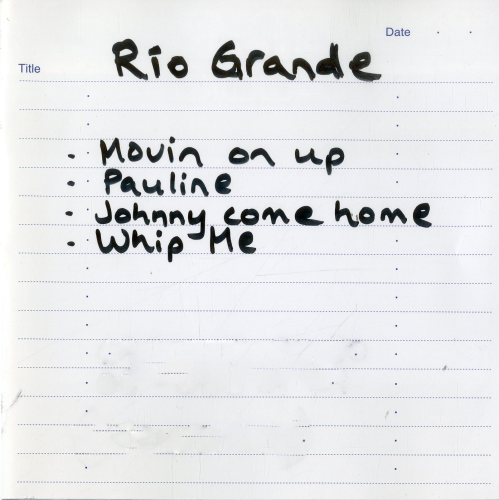 Date
Title
Rio Grande
· Movin on up
· Pauline
· Johnny come home
· Whip Me